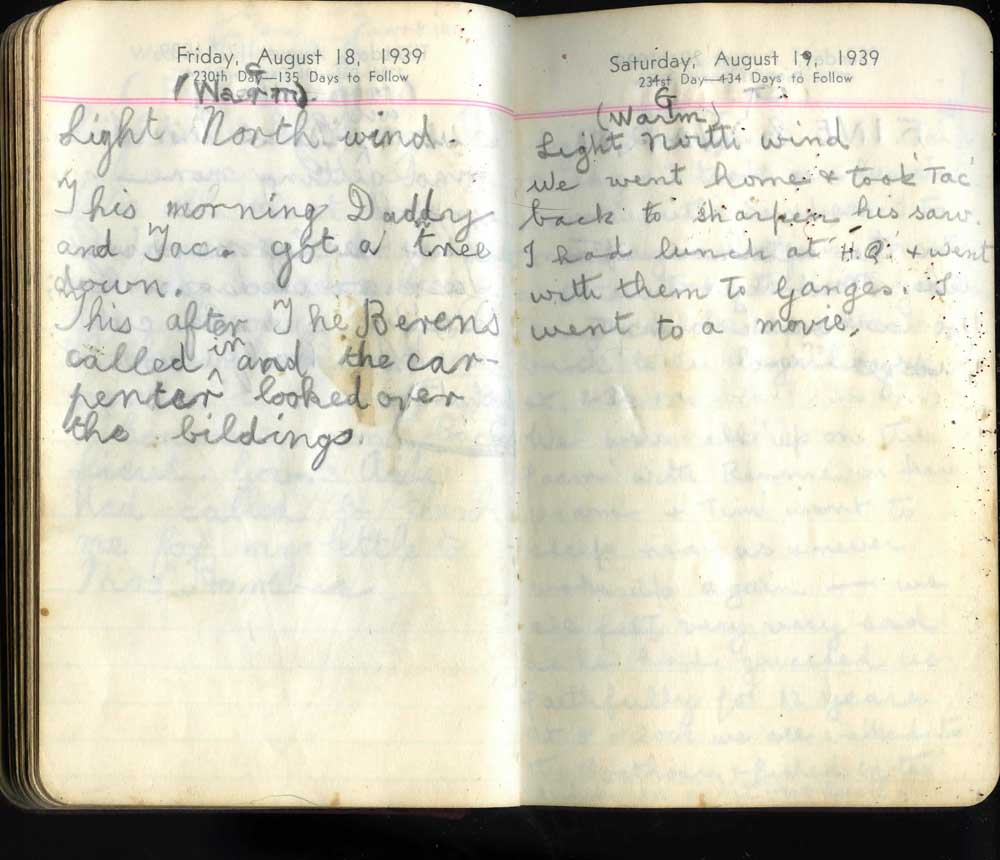 Friday, August 18, 1939
230th Day—135 Days to Follow
G
(Warm).
Light North wind.
This morning Daddy
and Tac. got a tree
down.
This after The Berens
called in and the car-
penter looked over
the bildings.
Saturday, August 19, 1939
231st Day—134 Days to Follow
G
(Warm)
Light North wind
We went home & took Tac
back to sharpen his saw.
I had lunch at H.Q. & went
with them to Ganges. I
went to a movie.